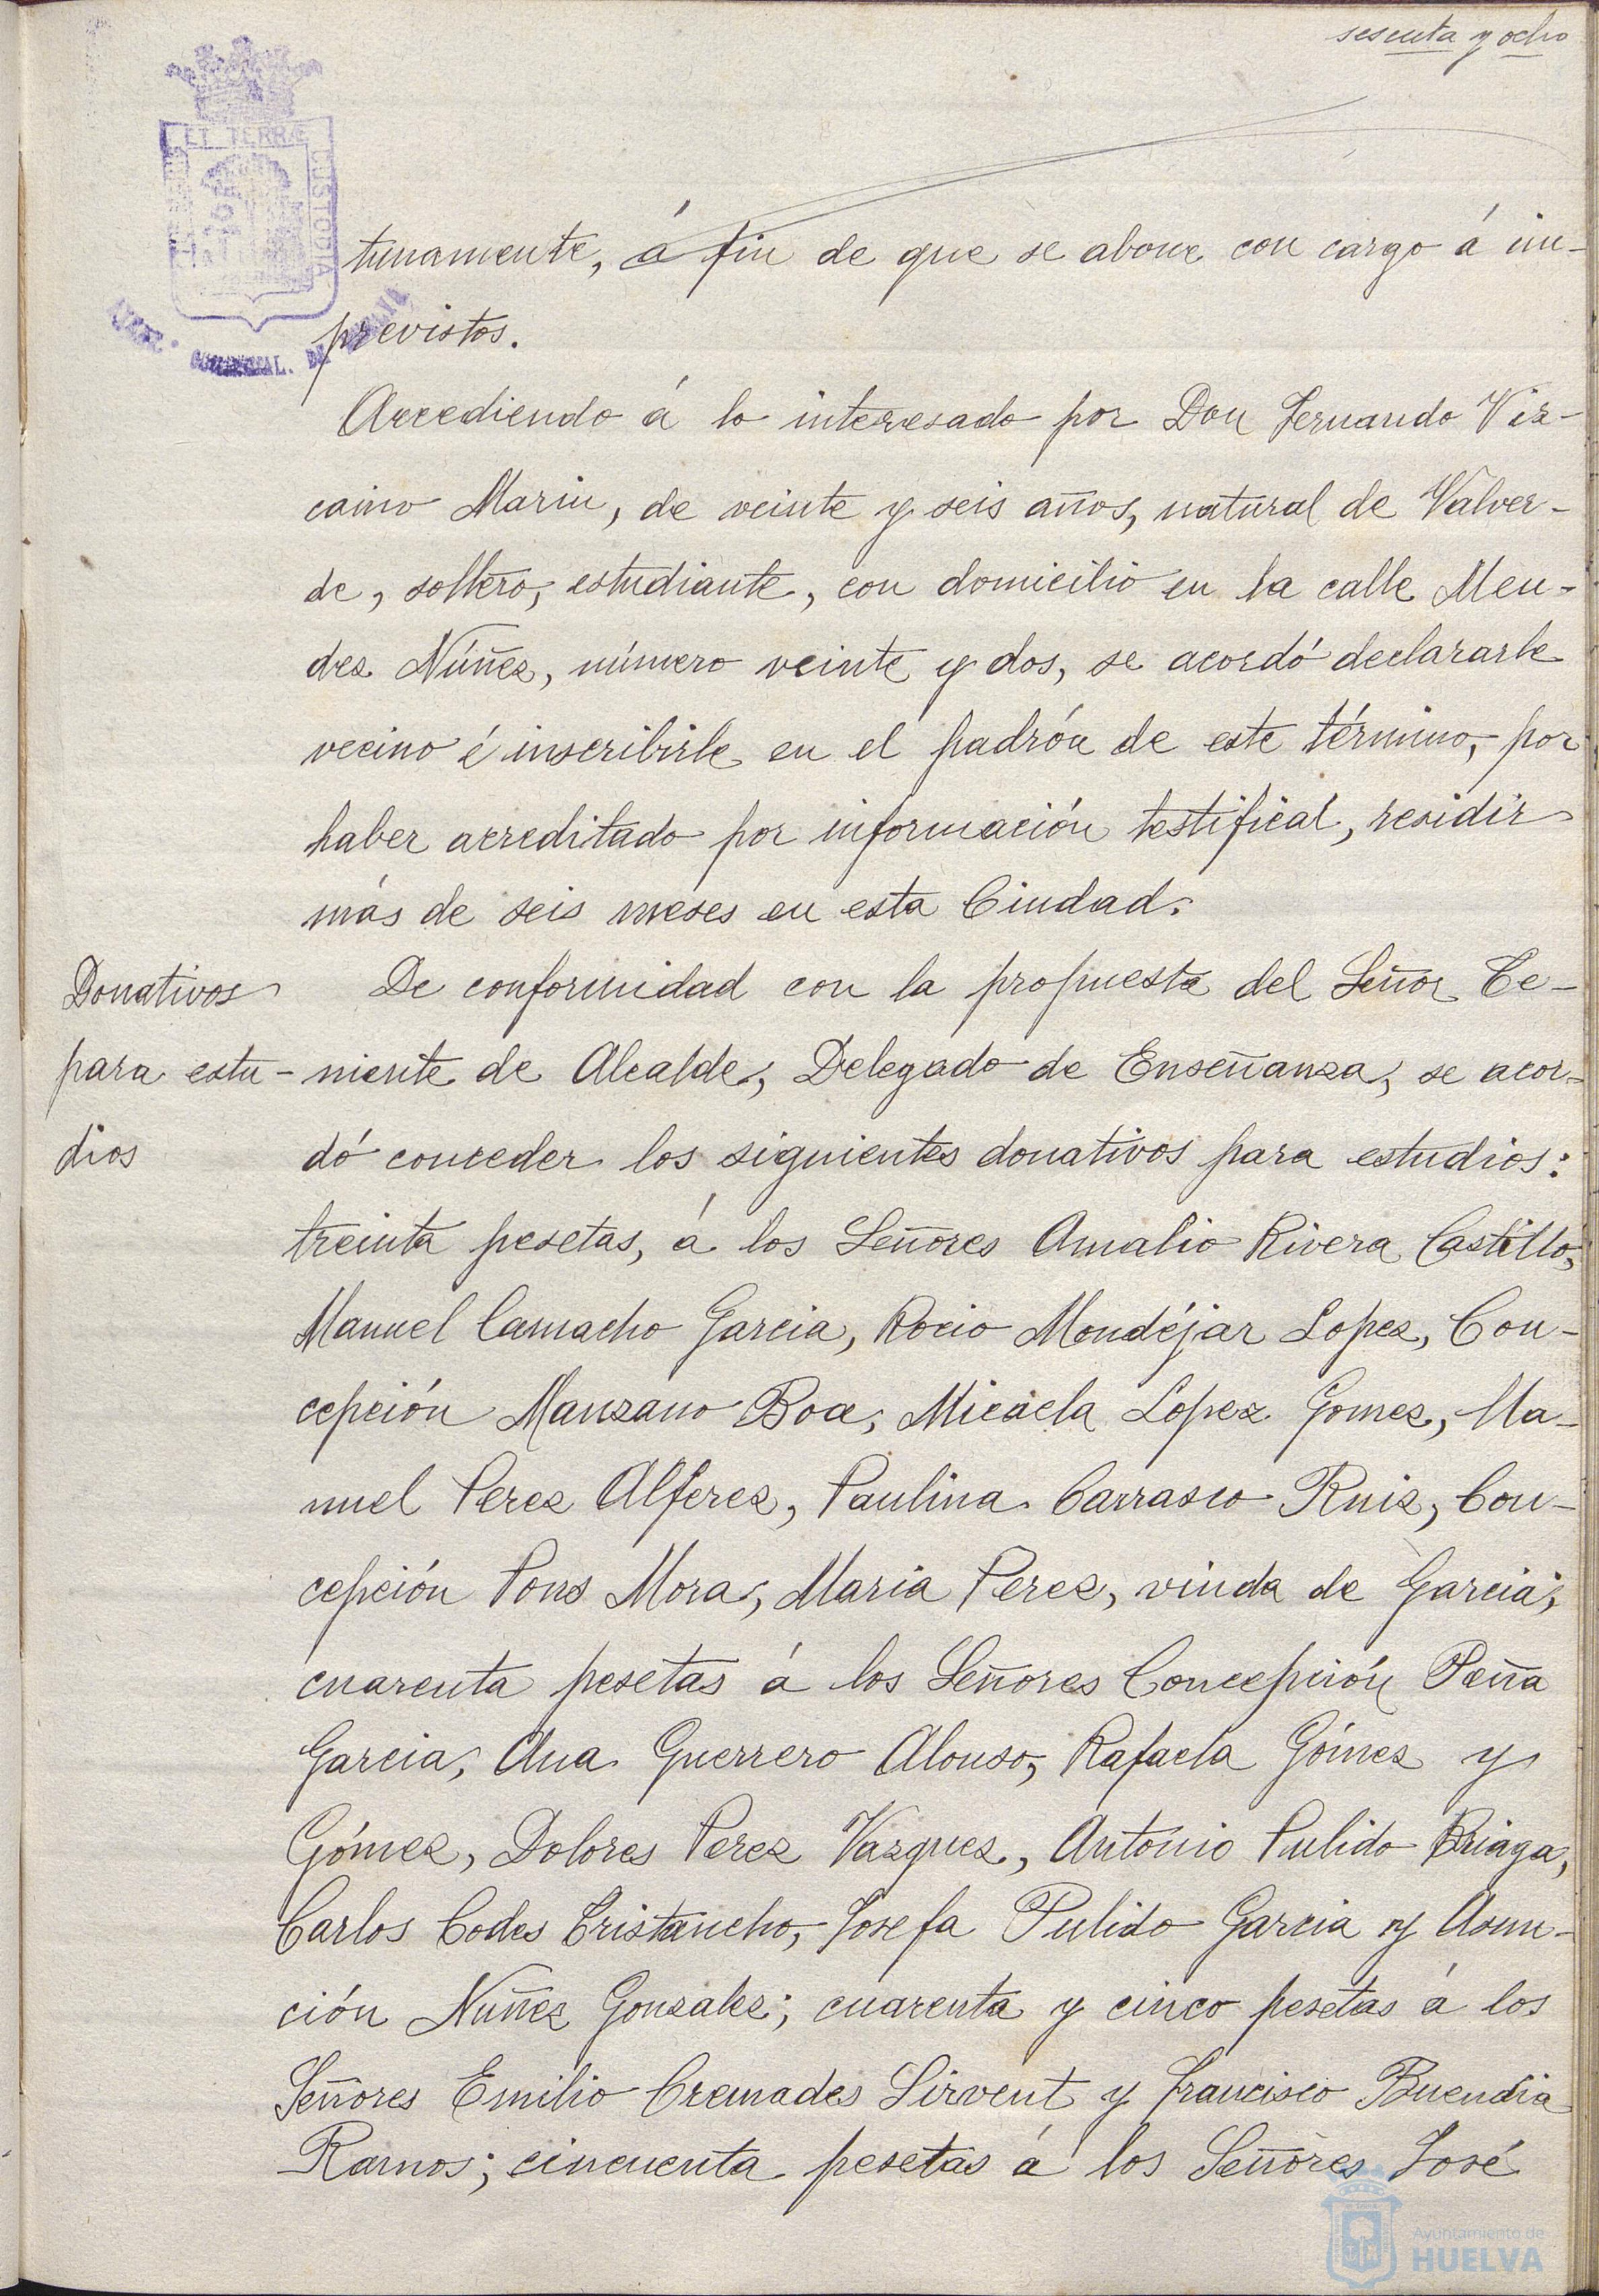 sesenta y ocho
ET TERRÆ
CUSTODIA
tunamente, á fin de que se abone con cargo á im-
previstos.
Accediendo á lo interesado por Don Fernando Viz-
caino Marin, de veinte y seis años, natural de Valver-
de, soltero, estudiante, con domicilio en la calle Men-
dez Núñez, número veinte y dos, se acordó declararle
vecino é inscribirle en el padrón de este término, por
haber acreditado por información testifical, residir
más de seis meses en esta Ciudad.
Donativos
para estu-
dios
De conformidad con la propuesta del Señor Te-
niente de Alcalde, Delegado de Enseñanza, se acor-
dó conceder los siguientes donativos para estudios:
treinta pesetas, á los Señores Amalio Rivera Castillo,
Manuel Camacho Garcia, Rocio Mondéjar Lopez, Con-
cepción Manzano Boa, Micaela Lopez Gomez, Ma-
nuel Perez Alferez, Paulina Carrasco Ruiz, Con-
cepción Pons Mora, Maria Perez, viuda de Garcia;
cuarenta pesetas á los Señores Concepción Peña
Garcia, Ana Guerrero Alonso, Rafaela Gómez y
Gómez, Dolores Perez Vazquez, Antonio Pulido Briaga,
Carlos Codes Cristancho, Josefa Pulido Garcia y Asun-
ción Nuñez Gonzalez; cuarenta y cinco pesetas á los
Señores Emilio Cremades Sirvent y Francisco Buendia
Ramos; cincuenta pesetas á los Señores José
Ayuntamiento de
HUELVA